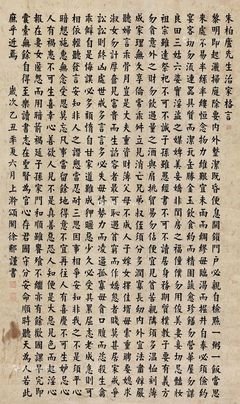 朱柏廬先生治家格言
黎明即起灑掃庭除要內外整潔既昏便息關鎖門戶必親自檢點一粥一飯當思
來處不易半絲半縷恒念物力維艱宜未雨而綢繆毋臨渴而掘井自奉必須儉約
宴客切勿留連器具質而潔瓦缶勝金玉飲食約而精園蔬愈珍饈勿營華屋勿謀
良田三姑六婆實淫盜之媒婢美妾嬌非閨房之福僮僕勿用俊美妻妾切忌艷妝
祖宗雖遠祭祀不可不誠子孫雖愚經書不可不讀居身務期質樸教子要有義方
勿貪意外之財勿飲過量之酒與肩挑貿易勿佔便宜見貧苦親鄰須多溫恤刻薄
成家理無久享倫常乖舛立見消亡兄弟叔侄須分多潤寡長幼內外宜法肅辭嚴
聽婦言乖骨肉豈是丈夫重資財薄父母不成人子嫁女擇佳婿毋索重聘娶媳求
淑女勿計厚奩見富貴而生諂容者最可恥遇貧窮而作驕態者賤莫甚居家戒爭
訟訟則終凶處世戒多言言多必失毋恃勢力而凌逼孤寡勿貪口腹而恣殺生禽
乖僻自是悔誤必多頹惰自甘家道難成狎暱惡少久必受其累屈志老成急則可
相依輕聽發言安知非人之譖愬當忍耐三思因事相爭安知非我之不是須平心
暗想施惠無念受恩莫忘凡事當留餘地得意不宜再往人有喜慶不可生妒忌心
人有禍患不可生喜幸心善欲人見不是真善惡恐人知便是大惡見色而起淫心
報在妻女匿怨而用暗箭禍延子孫家門和順雖饔飧不繼亦有餘歡國課早完即
囊橐無餘自得至樂讀書志在聖賢為官心存君國守分安命順時聽天為人若此
庶乎近焉 歲次乙丑年夏六月上澣 謹書